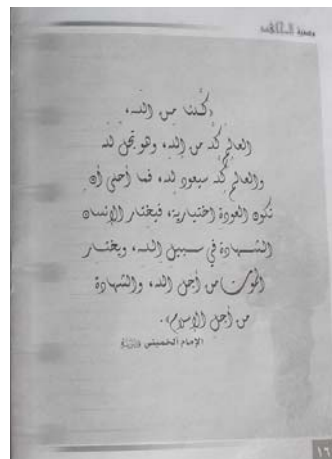 «كلنا من الله،
العالم كله من الله، وهو تجلٍ لله
والعالم كله سيعود لله، فما أحلى أن
تكون العودة اختيارية، فيختار الإنسان
الشهادة في سبيل الله، ويختار
الموت من أجل الله، والشهادة
من أجل الإسلام».
الإمام الخميني
١٦